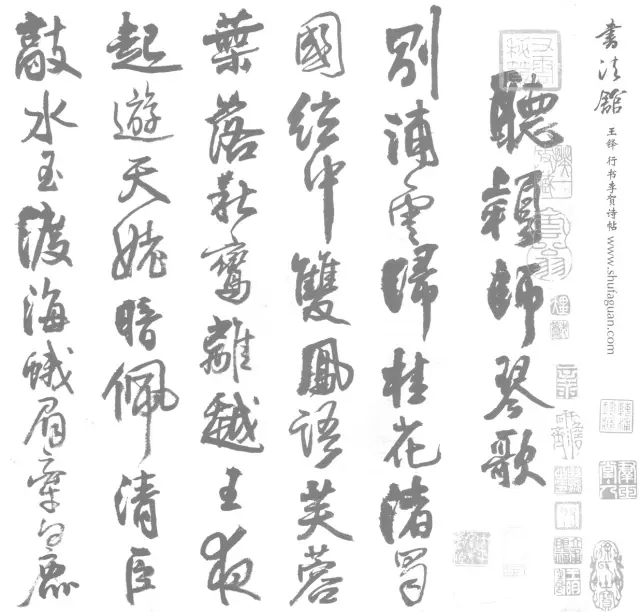 書法館
王铎 行书李贺诗帖 www.shufaguan.com
聽穎師琴歌
別浦雲歸桂花渚蜀
國絃中雙鳳語芙蓉
葉落秋鸞離越王夜
起遊天姥暗佩清臣
敲水玉渡海蛾眉牽白鹿